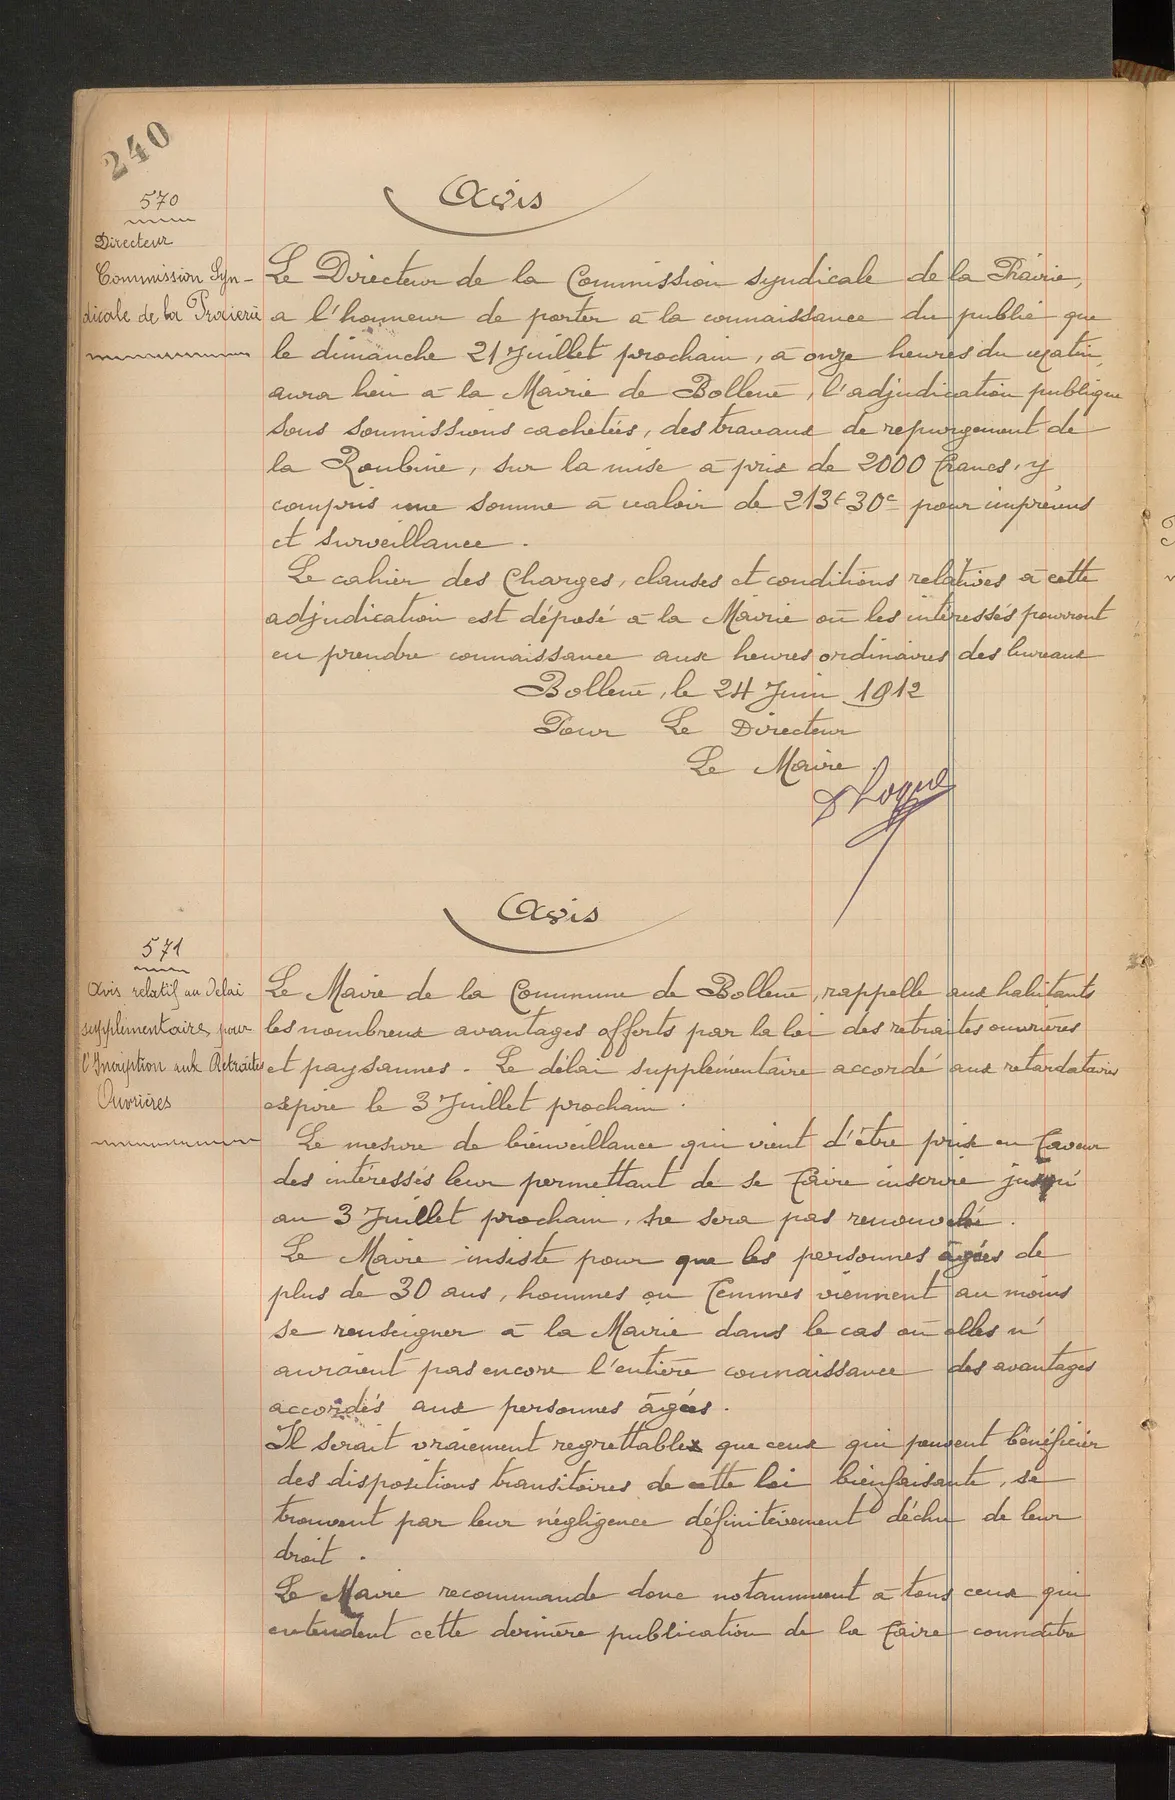 240
570
Directeur
Commission Syn-
dicale de la Prairie
Avis
Le Directeur de la Commission syndicale de la Prairie,
a l'honneur de porter à la connaissance du public que
le dimanche 21 Juillet prochain, à onze heures du matin,
aura lieu à la Mairie de Bollène, l'adjudication publique
sous soumissions cachetées, des travaux de repurgement de
la Roubine, sur la mise à prix de 2000 francs, y
compris une somme à valoir de 213f 30c pour imprévus
et surveillance.
Le cahier des Charges, clauses et conditions relatives à cette
adjudication est déposé à la Mairie où les intéressés pourront
en prendre connaissance aux heures ordinaires des bureaux
Bollène, le 24 Juin 1912
Pour Le Directeur
Le Maire.
571
Avis relatif au délai
supplémentaire pour
l'Incription aux Retraites
Ouvrières
Avis
Le Maire de la Commune de Bollène, rappelle aux habitants
les nombreux avantages offerts par la loi des retraites ouvrières
et paysannes. Le délai supplémentaire accordé aux retardataires
expire le 3 Juillet prochain.
Le mesure de bienveillance qui vient d'être prise en faveur
des intéressés leur permettant de se faire inscrire jusqu'
au 3 Juillet prochain, ne sera pas renouvelée.
Le Maire insiste pour que les personnes âgées de
plus de 30 ans, hommes ou femmes viennent au moins
se renseigner à la Mairie dans le cas où elles n'
auraient pas encore l'entière connaissance des avantages
accordés aux personnes âgées.
Il serait vraiement regrettable que ceux qui peuvent bénéficier
des dispositions transitoires de cette loi bienfaisante, se
trouvent par leur négligence définitivement déchu de leur
droit.
Le Maire recommande donc notamment à tous ceux qui
entendent cette dernière publication de la faire connaître